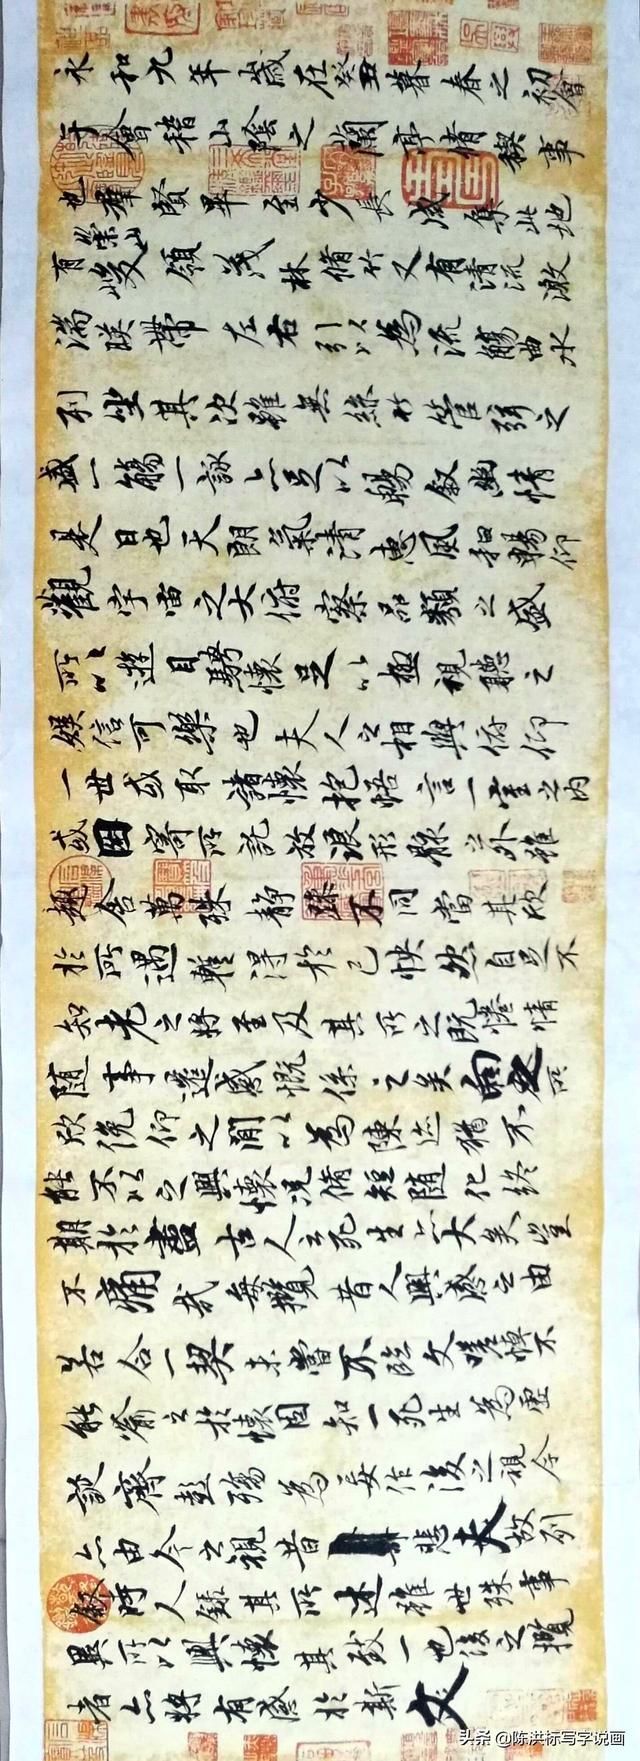 永和九年歲在癸丑暮春之初會
于會稽山陰之蘭亭脩稧事
也羣賢畢至少長咸集此地
有崇山峻領茂林脩竹又有清流激
湍暎帶左右引以為流觴曲水
列坐其次雖無絲竹管弦之
盛一觴一詠亦足以暢叙幽情
是日也天朗氣清惠風和暢仰
觀宇宙之大俯察品類之盛
所以遊目騁懷足以極視聽之
娛信可樂也夫人之相與俯仰
一世或取諸懷抱悟言一室之內
或因寄所託放浪形骸之外雖
趣舍萬殊靜躁不同當其欣
於所遇輙得於己怏然自足不
知老之將至及其所之既惓情
隨事遷感慨係之矣向之所
欣俛仰之閒以為陳迹猶不
能不以之興懷況脩短隨化終
期於盡古人云死生亦大矣豈
不痛哉每攬昔人興感之由
若合一契未嘗不臨文嗟悼不
能喻之於懷固知一死生為虛
誕齊彭殤為妄作後之視今
亦由今之視昔悲夫故列
叙時人錄其所述雖世殊事
異所以興懷其致一也後之攬
者亦將有感於斯文
头条 @陈洪标写字说画